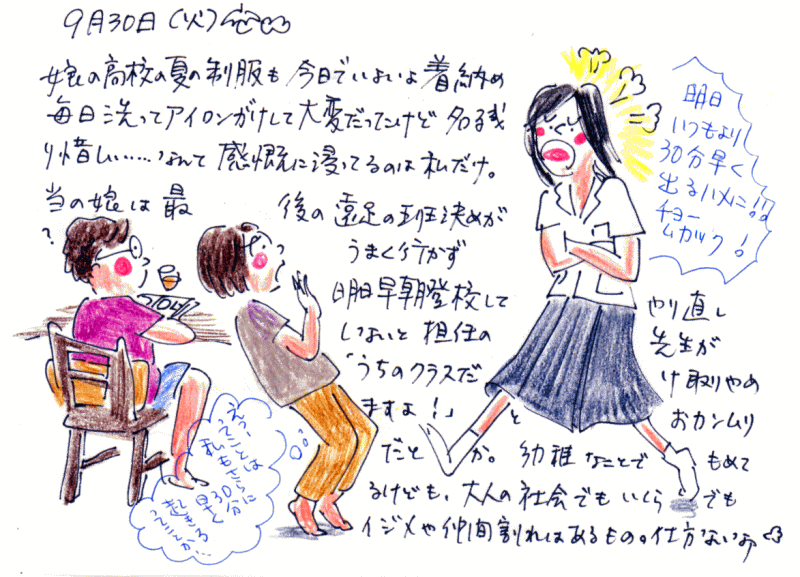 9月30日(火)
娘の高校の夏の制服も 今日でいよいよ着納め
毎日洗ってアイロンがけして大変だったけど 名残
り惜しい……なんて 感慨に浸ってるのは私だけ。
当の娘は 最 後の 遠足の班決めが
うまく行かず
明日早朝登校して やり直し
しないと 担任の 先生が
「うちのクラスだ け取りやめ
ますよ!」と おカンムリ
だとか。幼稚なことで もめて
るけども、大人の社会でも いくらでも
イジメや仲間割れはあるもの。仕方ないか
明日
いつもより
30分早く
出るハメに!!
チョー
ムカツク!
えっ、
ってことは
私もさらに
早く30分
起きろ